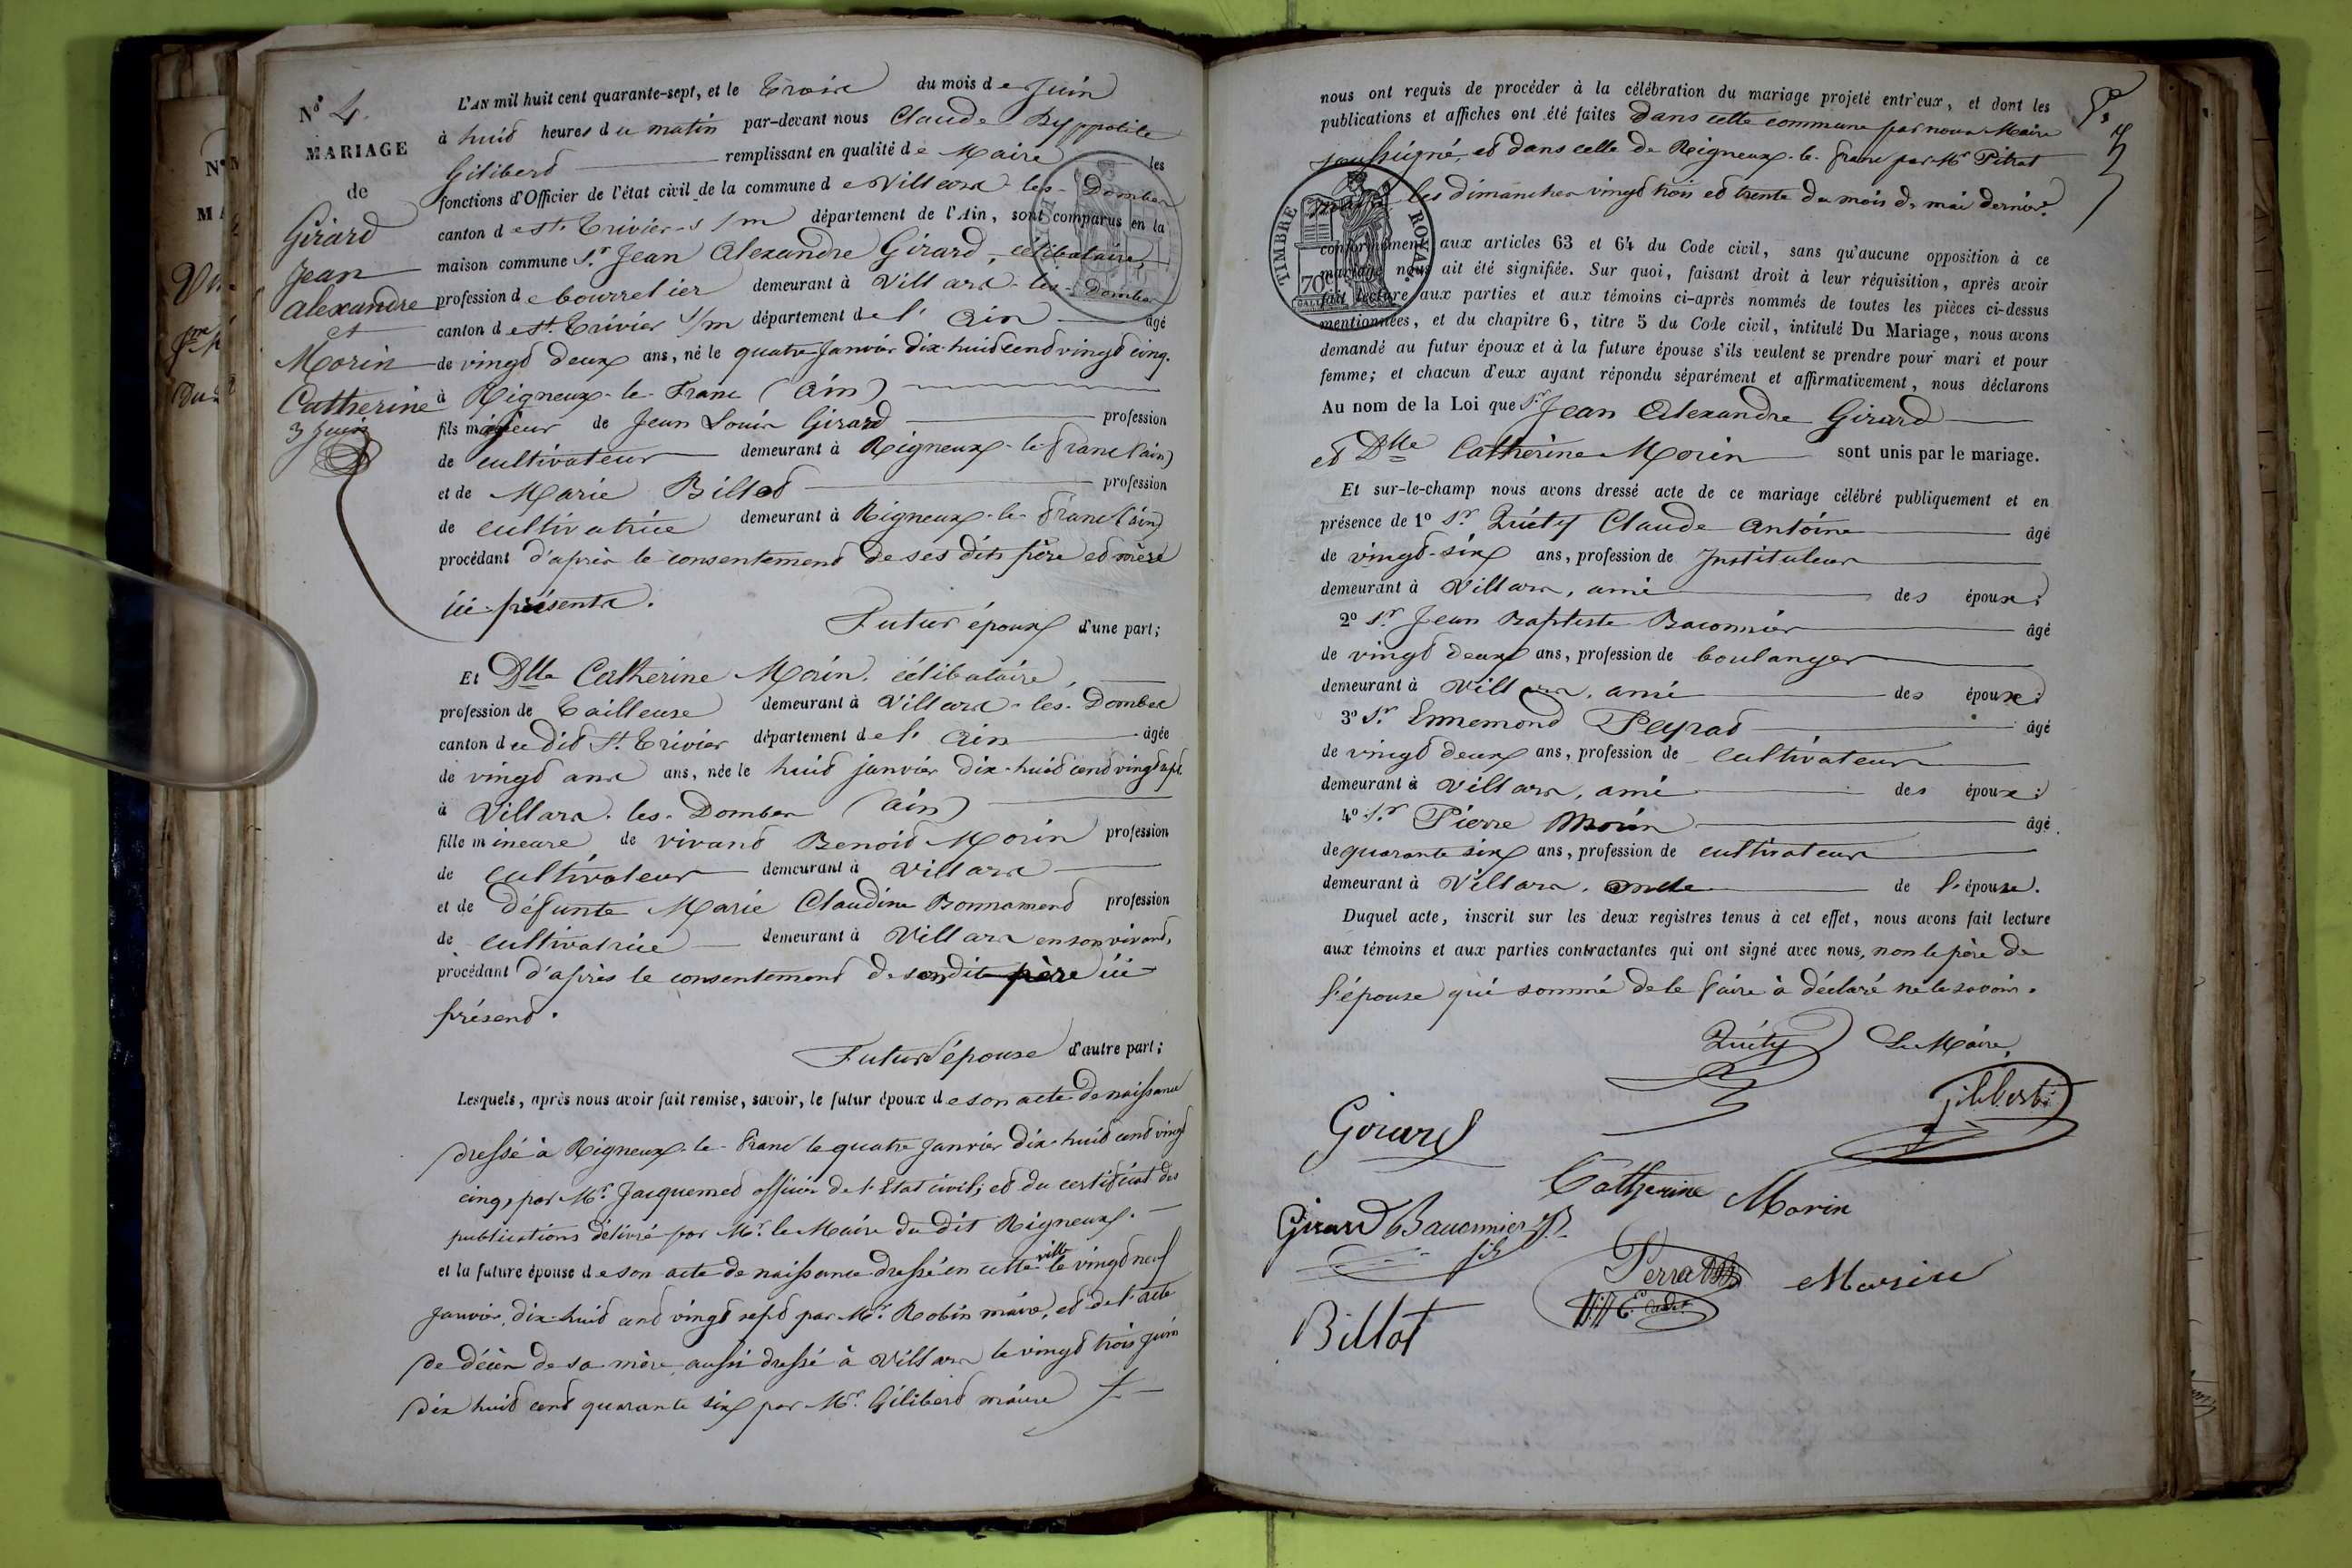 N° 4.
MARIAGE
de
Girard
Jean
Alexandre
et
Morin
Catherine
3 Juin
L'AN mil huit cent quarante-sept, et le Trois du mois de Juin
à huit heures du matin par-devant nous Claude Hyppolite
Gilibert remplissant en qualité de Maire les
fonctions d'Officier de l'état civil de la commune de Villars-les-Dombes
canton de St. Trivier s/m département de l'Ain, sont comparus en la
maison commune Sr. Jean Alexandre Girard, célibataire,
profession de bourrelier demeurant à Villars-les-Dombes
canton de St. Trivier s/m département de l'Ain âgé
de vingt deux ans, né le quatre Janvier dix-huit cent vingt cinq.
à Rigneux-le-Franc (Ain)
fils majeur de Jean Louis Girard profession
de cultivateur demeurant à Rigneux-le-franc (ain)
et de Marie Billot profession
de cultivatrice demeurant à Rigneux-le-franc (ain)
procédant d'après le consentement de ses dits père et mère
ici présents.
Futur époux d'une part;
Et Dlle Catherine Morin, célibataire,
profession de Tailleuse demeurant à Villars-les-Dombes
canton du dit St. Trivier département de l'Ain âgée
de vingt ans ans, née le huit janvier dix-huit cent vingt sept.
à Villars-les-Dombes (ain)
fille mineure de vivant Benoit Morin profession
de cultivateur demeurant à Villars
et de défunte Marie Claudine Bonnamend profession
de cultivatrice demeurant à Villars en son vivant,
procédant d'après le consentement de son dit père ici
présent.
Future épouse d'autre part;
Lesquels, après nous avoir fait remise, savoir, le futur époux de son acte de naissance
dressé à Rigneux-le-Franc le quatre Janvier dix-huit cent vingt
cinq, par Mr. Jacquemet officier de l'Etat civil; et du certificat des
publications délivré par Mr. le Maire du dit Rigneux.
et la future épouse de son acte de naissance dressé en cette ville le vingt neuf
Janvier, dix-huit cent vingt sept par Mr. Robin maire, et de l'acte
de décès de sa mère aussi dressé à Villars le vingt trois juin
dix huit cent quarante six par Mr. Gilibert maire
nous ont requis de procéder à la célébration du mariage projeté entr'eux, et dont les
publications et affiches ont été faites dans cette commune par nous Maire
soussigné, et dans celle de Rigneux-le-franc par Mr Pitrat
maire les dimanches vingt trois et trente du mois de mai dernier.
TIMBRE ROYAL
70c
conformément aux articles 63 et 64 du Code civil, sans qu'aucune opposition à ce
mariage nous ait été signifiée. Sur quoi, faisant droit à leur réquisition, après avoir
fait lecture aux parties et aux témoins ci-après nommés de toutes les pièces ci-dessus
mentionnées, et du chapitre 6, titre 5 du Code civil, intitulé Du Mariage, nous avons
demandé au futur époux et à la future épouse s'ils veulent se prendre pour mari et pour
femme; et chacun d'eux ayant répondu séparément et affirmativement, nous déclarons
Au nom de la Loi que Sr. Jean Alexandre Girard
et Dlle Catherine Morin sont unis par le mariage.
Et sur-le-champ nous avons dressé acte de ce mariage célébré publiquement et en
présence de 1° Sr. Quéty Claude Antoine âgé
de vingt-six ans, profession de Instituteur
demeurant à Villars, ami des époux;
2° Sr. Jean Baptiste Baconnier âgé
de vingt deux ans, profession de boulanger
demeurant à Villars, ami des époux;
3° Sr. Ennemond Peyrat âgé
de vingt deux ans, profession de cultivateur
demeurant à Villars, ami des époux;
4° Sr. Pierre Morin âgé
de quarante six ans, profession de cultivateur
demeurant à Villars, oncle de l'épouse.
Duquel acte, inscrit sur les deux registres tenus à cet effet, nous avons fait lecture
aux témoins et aux parties contractantes qui ont signé avec nous, non le père de
l'épouse qui sommé de le faire à déclaré ne le savoir.
Quéty Le Maire,
Gilibert
Girard
Catherine Morin
Girard Bauconnier
fils
Perrat Morin
Billot